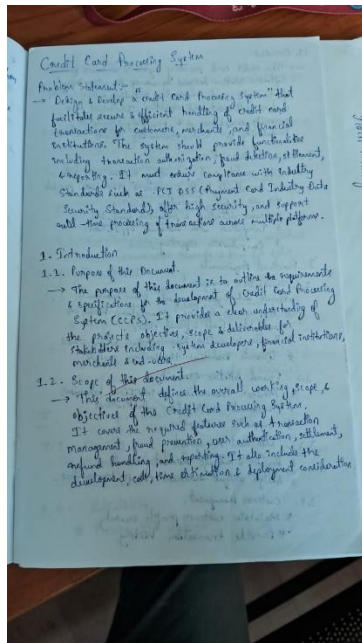 Credit Card Processing System
Problem Statement:-
→ Design & Develop a "credit card Processing System" that
facilitates secure & efficient handling of credit card
transactions for customers, merchants, and financial
institutions. The system should provide functionalities
including transaction authorization, fraud detection, settlement,
& reporting. It must ensure compliance with Industry
Standards such as PCI DSS (Payment Card Industry Data
Security Standard), offer high security, and support
real-time processing of transactions across multiple platforms.
1. Introduction
1.1. Purpose of this Document.
→ The purpose of this document is to outline the requirements
& specifications for the development of Credit Card Processing
System (CCPS). It provides a clear understanding of
the projects objective, scope & deliverables for
stakeholders including system developers, financial institutions,
merchants & end-users.
1.2. Scope of this document.
→ This document defines the overall working, scope, &
objectives of the Credit Card Processing System.
It covers the required features such as transaction
management, fraud prevention, user authentication, settlement,
refund handling, and reporting. It also include the
development, cost, time estimation & deployment consideration